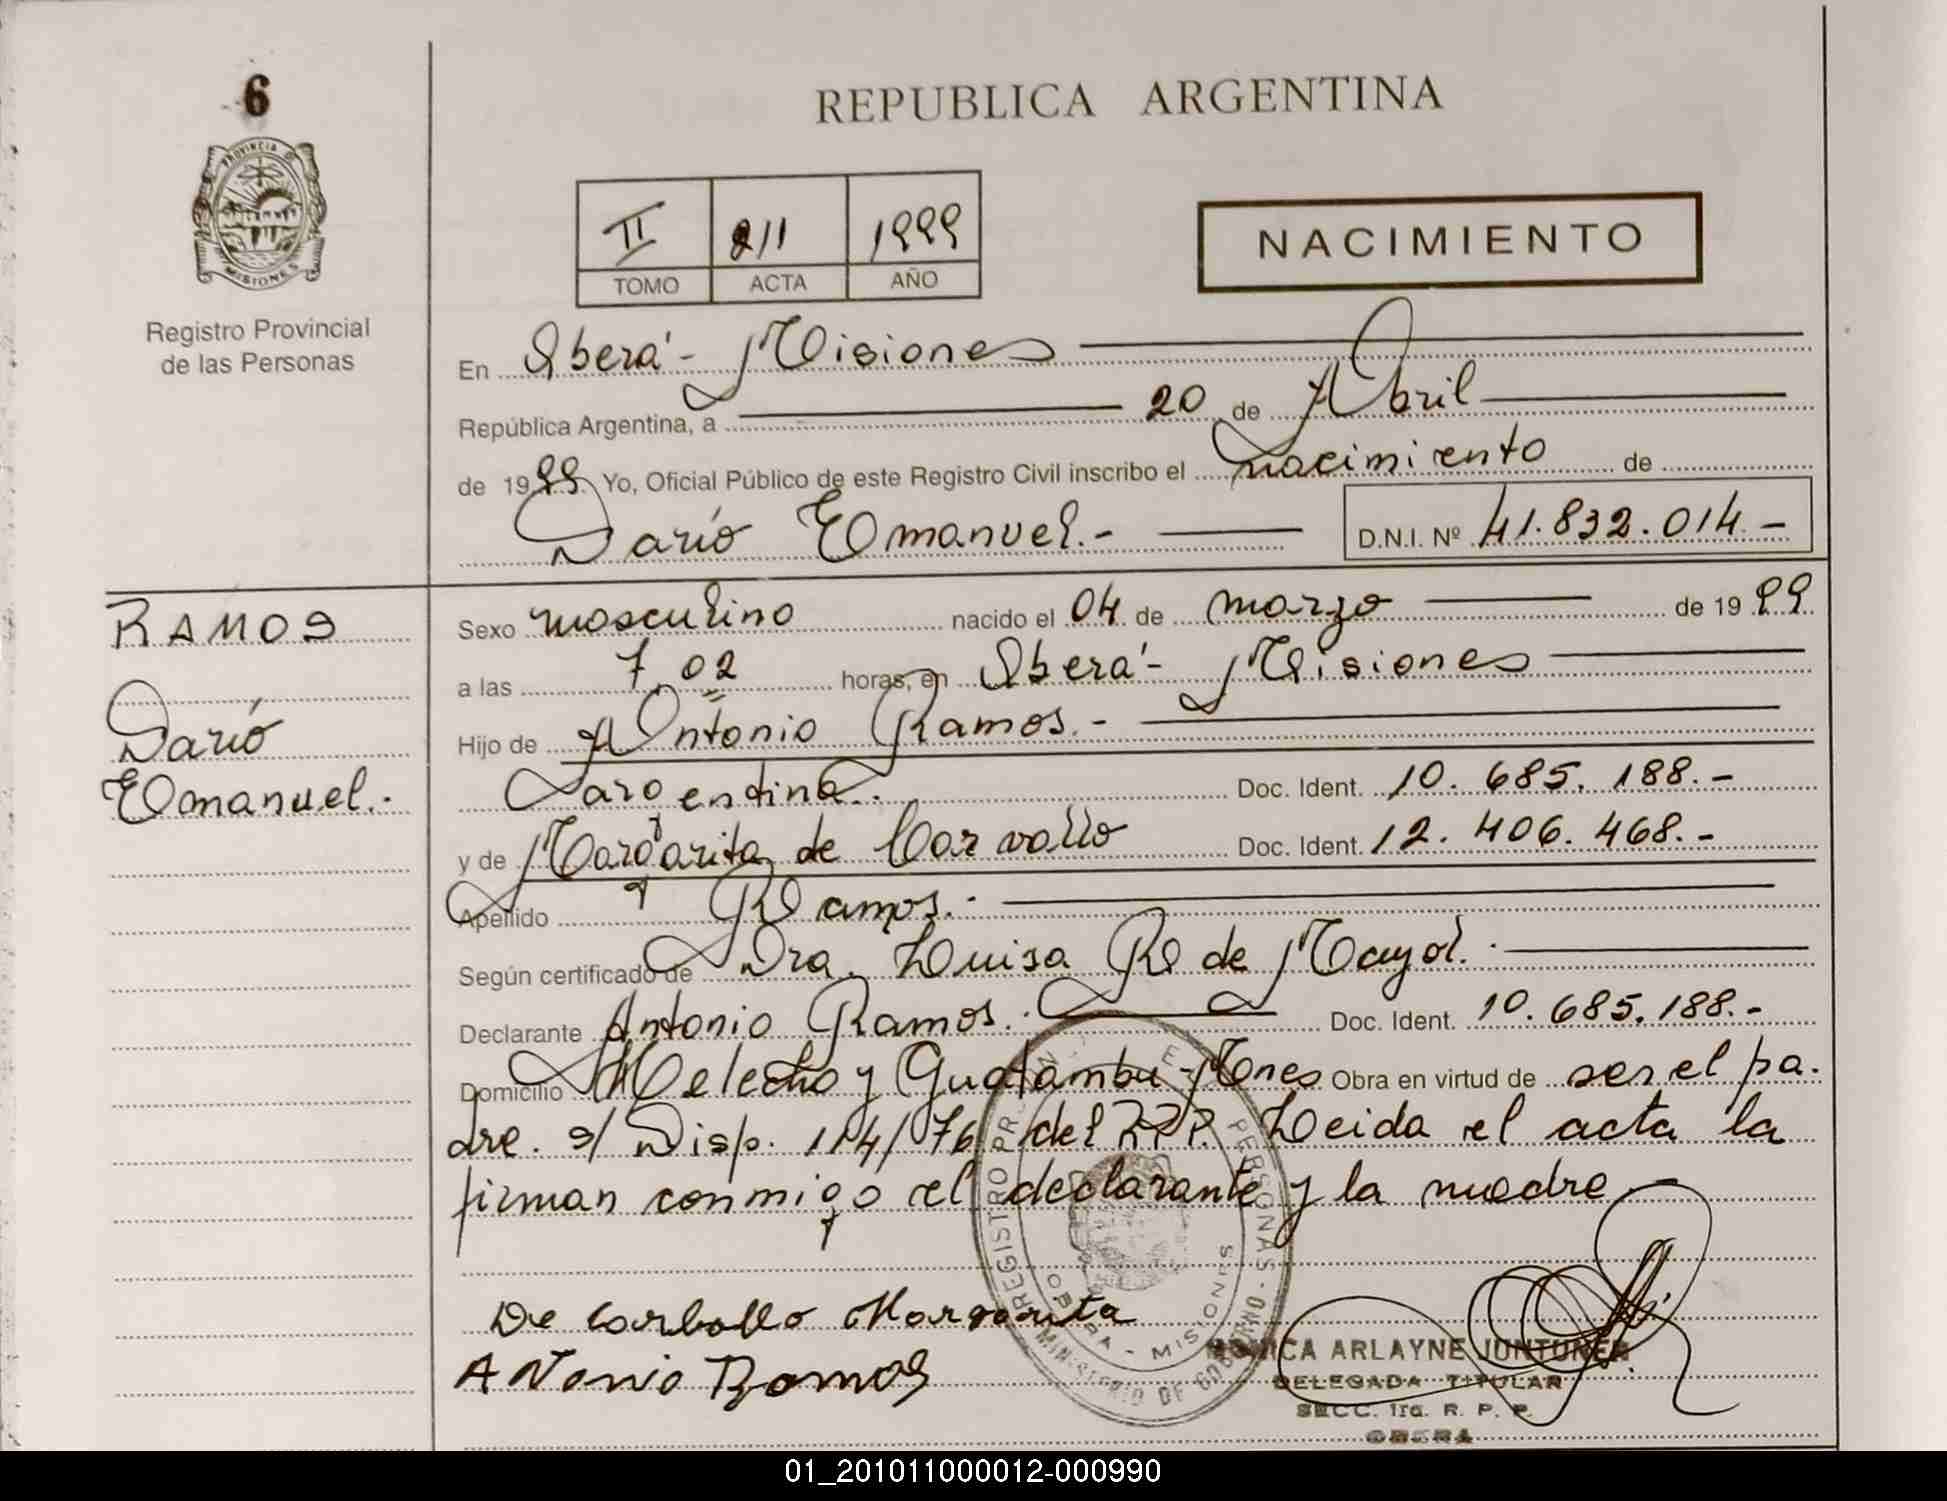 6
PROVINCIA D
MISIONES
Registro Provincial
de las Personas
REPUBLICA ARGENTINA
II 211 1999
TOMO ACTA AÑO
NACIMIENTO
En Oberá - Misiones
República Argentina, a 20 de Abril
de 1999 Yo, Oficial Público de este Registro Civil inscribo el nacimiento de
Darío Emanuel.- D.N.I. Nº 41.832.014.-
RAMOS
Darío
Emanuel.-
Sexo masculino nacido el 04 de marzo de 1999
a las 7,02 horas, en Oberá - Misiones
Hijo de Antonio Ramos.-
argentina.- Doc. Ident. 10.685.188.-
y de Margarita de Carvallo Doc. Ident. 12.406.468.-
Apellido Ramos.-
Según certificado de Dra. Luisa R de Mayol.-
Declarante Antonio Ramos.- Doc. Ident. 10.685.188.-
Domicilio Melecho y Guatambu - Mnes Obra en virtud de ser el pa-
dre. s/ Disp. 114/76 del R.P.P. Leida el acta la
firman conmigo el declarante y la madre
De Carballo Margarita
Antonio Ramos
REGISTRO PERSONAS
OBERA - MISIONES
MINISTERIO DE GOBIERNO
MONICA ARLAYNE JUNTUNEN
DELEGADA TITULAR
SECC. 1ra. R. P. P.
OBERA
01_201011000012-000990